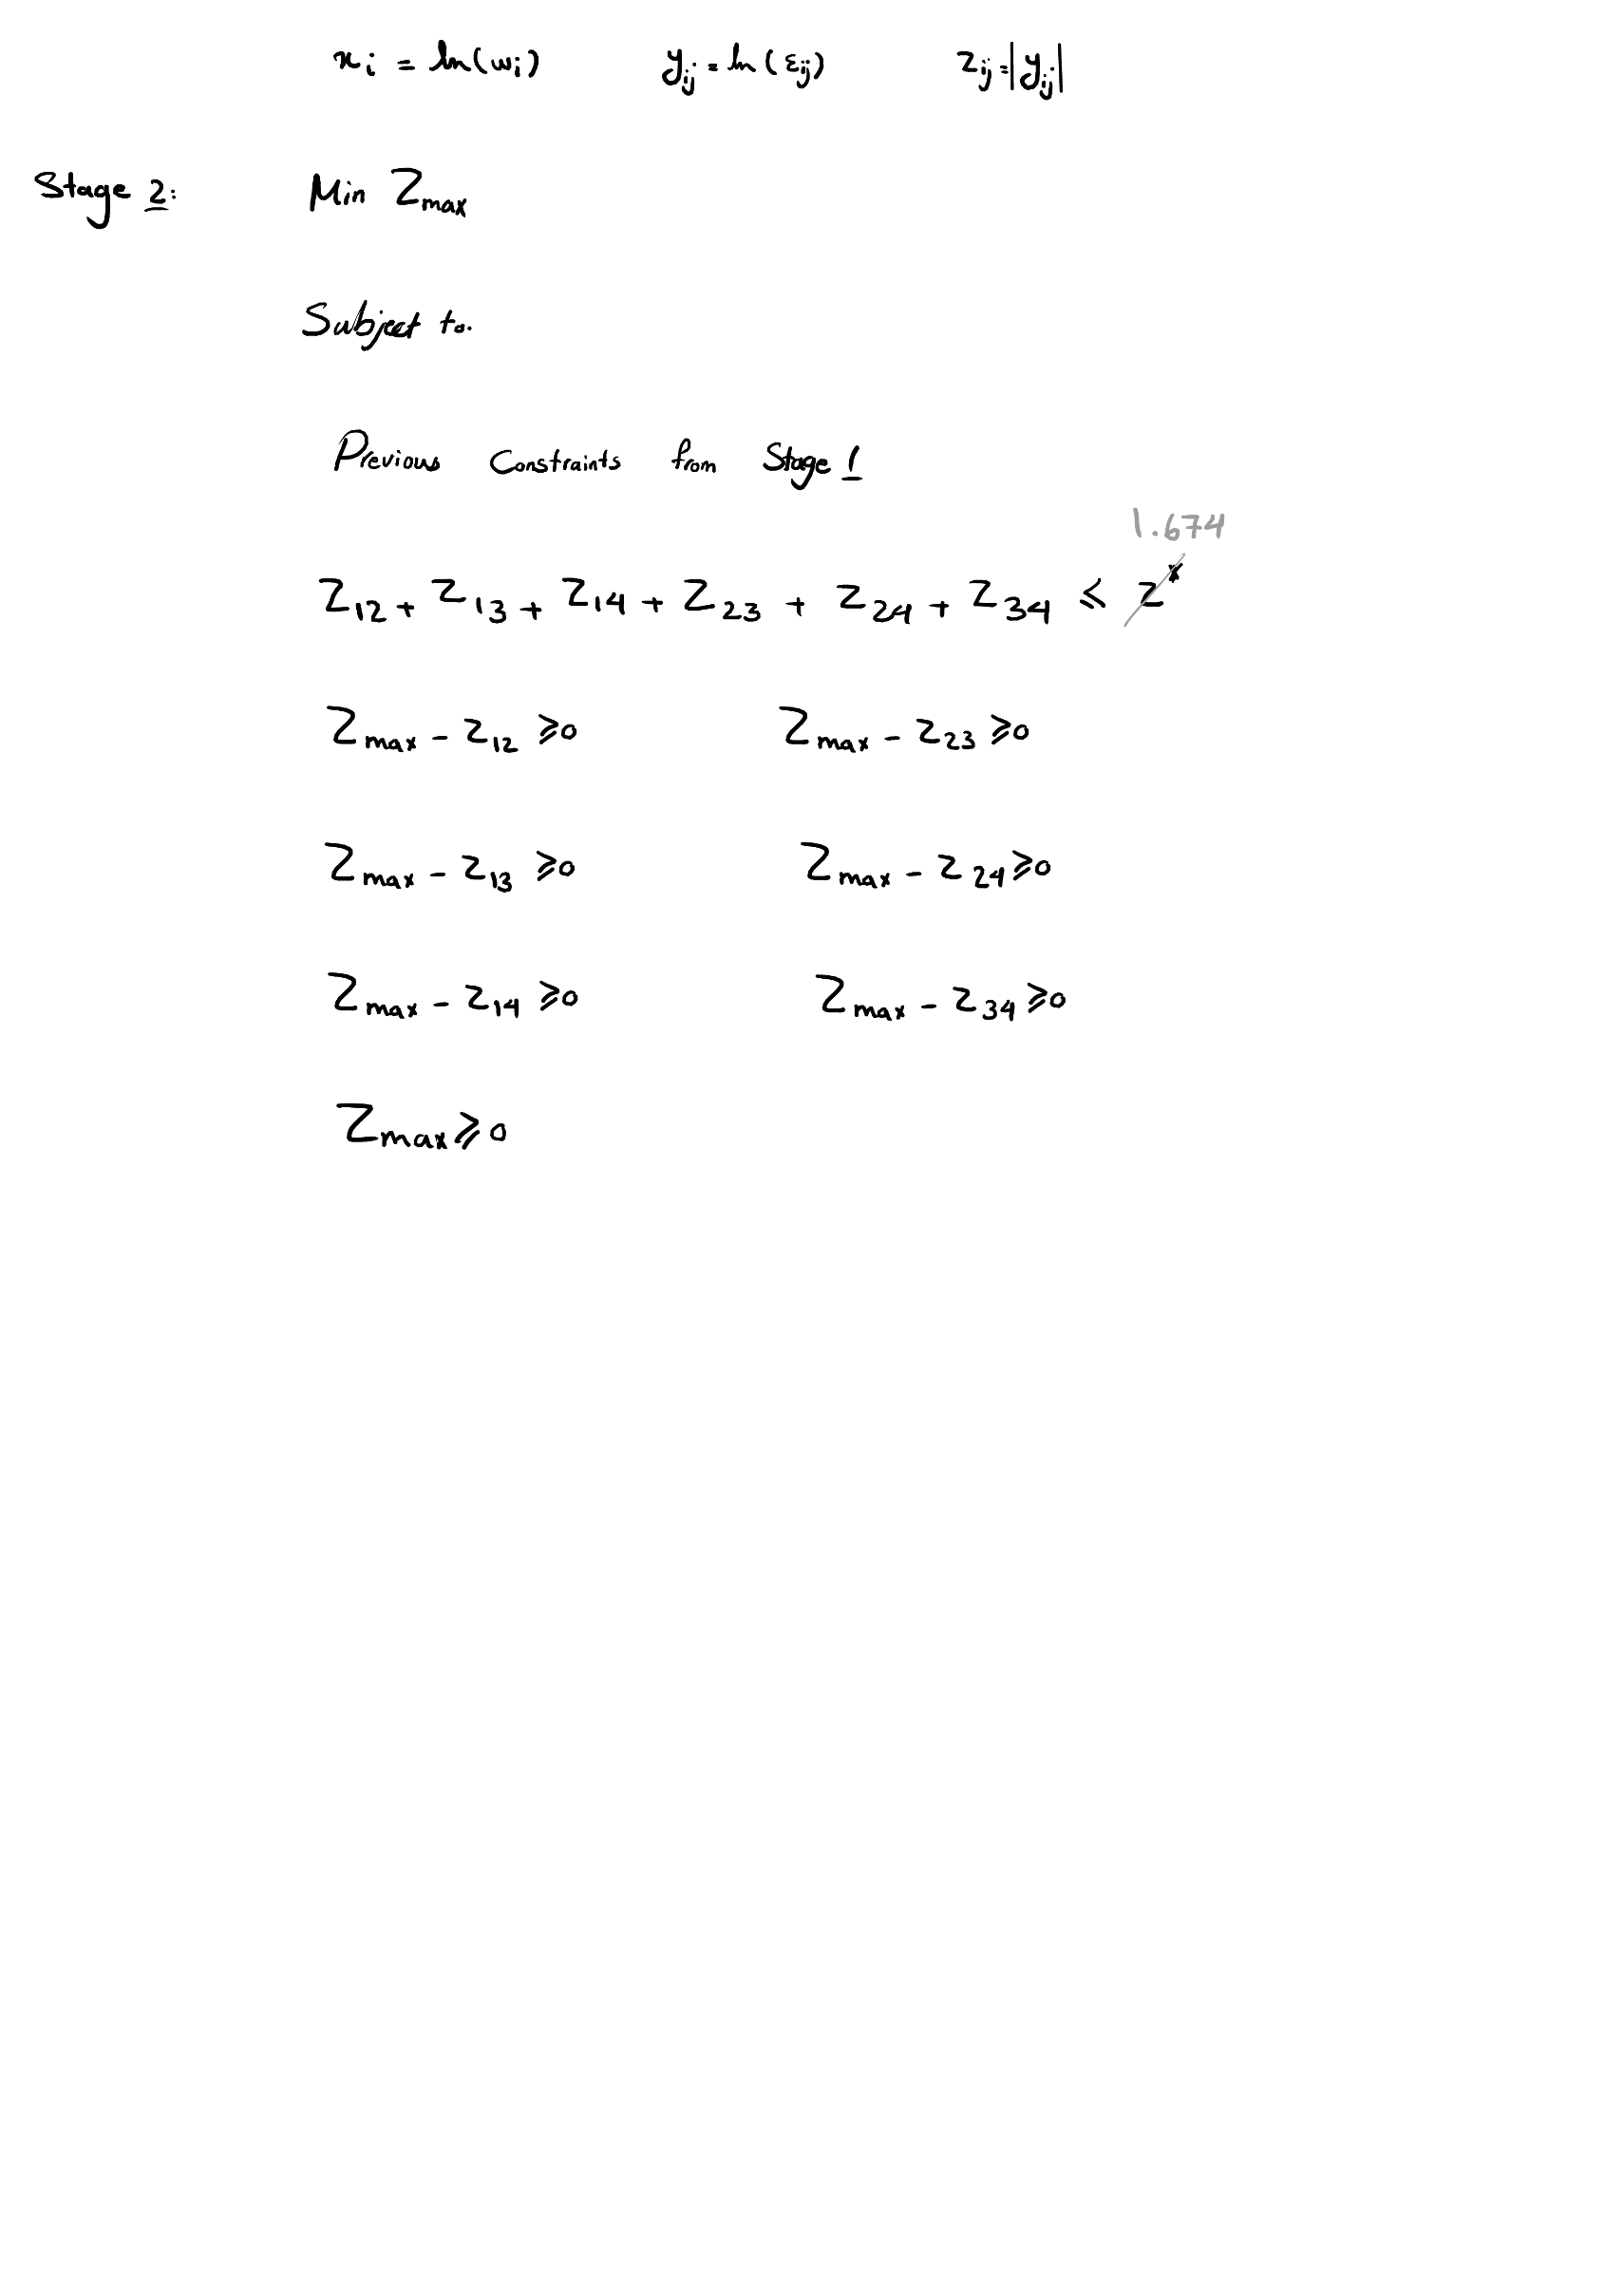 x_i = ln(w_i) y_ij = ln(ε_ij) z_ij = |y_ij|
Stage 2: Min Z_max
Subject to.
Previous Constraints from Stage 1
1.674
Z_12 + Z_13 + Z_14 + Z_23 + Z_24 + Z_34 ≤ Z*
Z_max - z_12 ≥ 0 Z_max - z_23 ≥ 0
Z_max - z_13 ≥ 0 Z_max - z_24 ≥ 0
Z_max - z_14 ≥ 0 Z_max - z_34 ≥ 0
Z_max ≥ 0